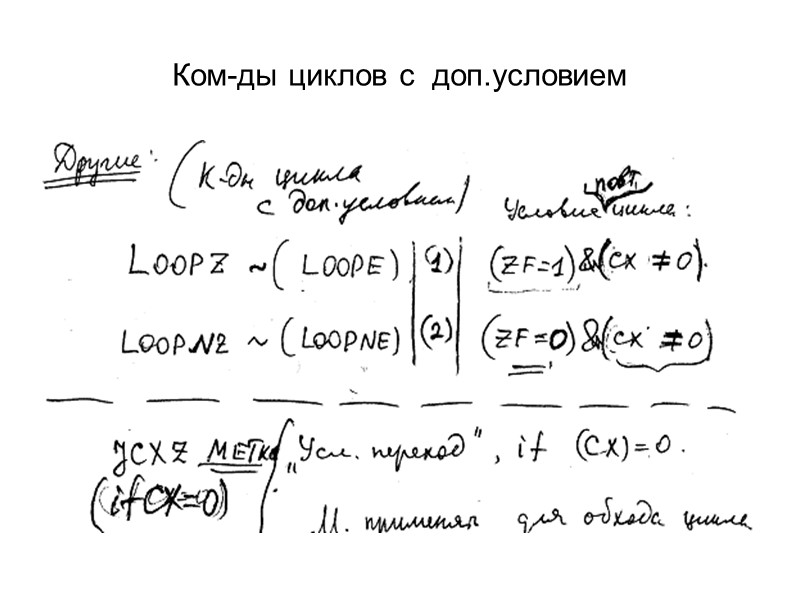 Ком-ды циклов с доп.условием
Другие: (К-ды цикла
с доп.условием) Условие повт. цикла:
LOOPZ ~ (LOOPE) 1) (ZF=1)&(CX ≠ 0).
LOOPNZ ~ (LOOPNE) (2) (ZF=0)&(CX ≠ 0)
JCXZ МЕТКА „Усл. переход", if (CX)=0.
(if CX=0)
М. применять для обхода цикла